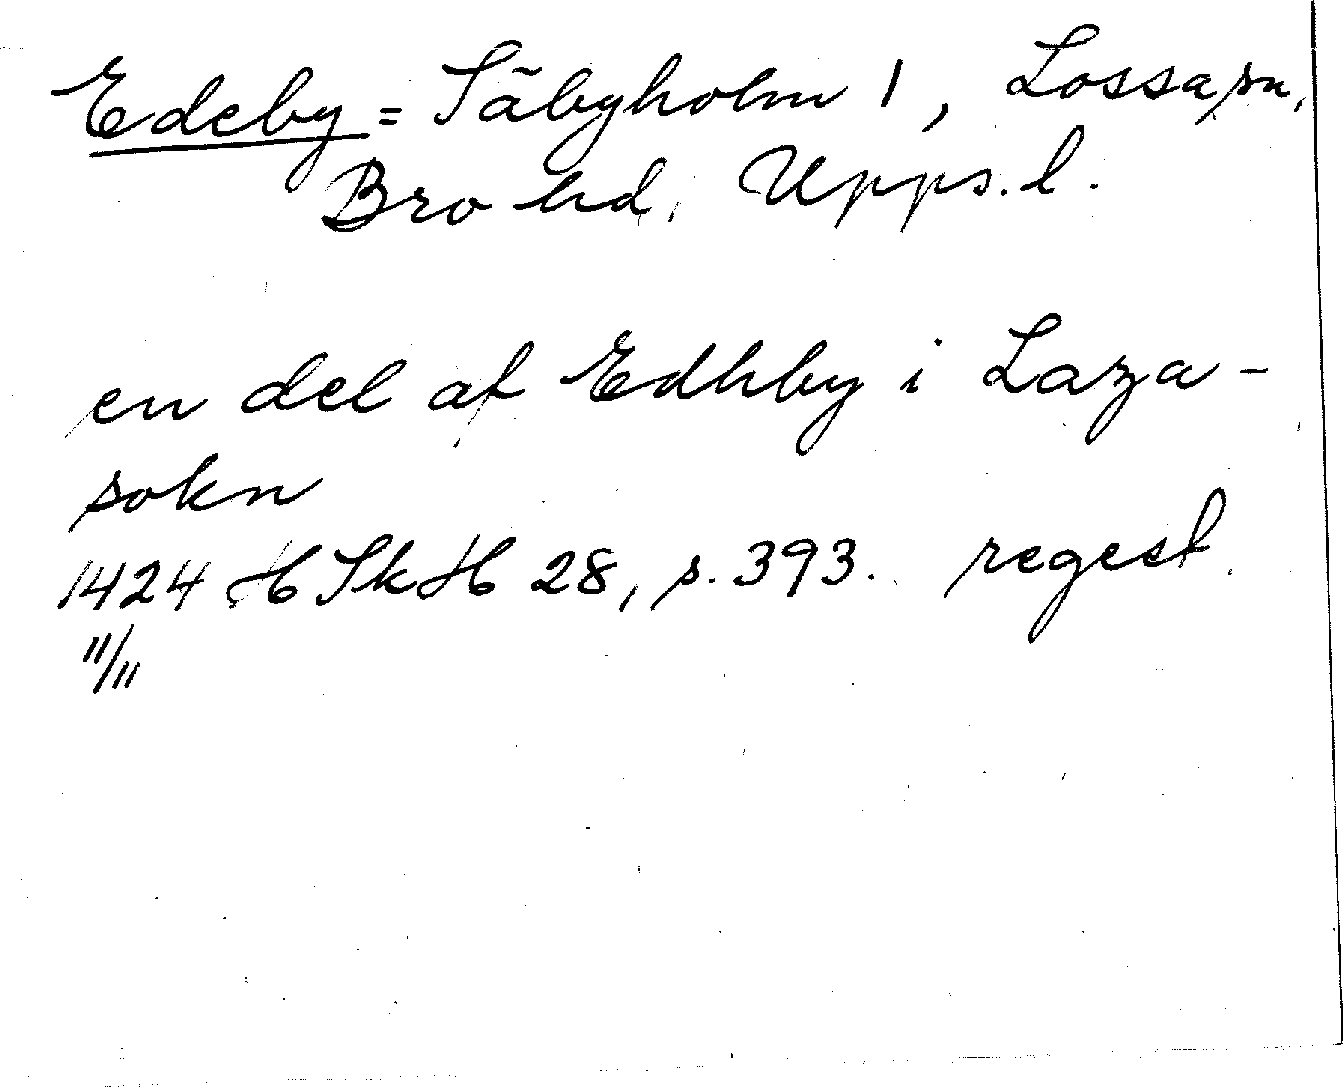 Edeby = Säbyholm 1, Lossa sn,
Bro hd, Upps.l.
en del af Edhby i Laza-
sokn
1424 HSkH 28, s. 393. regest
11/11